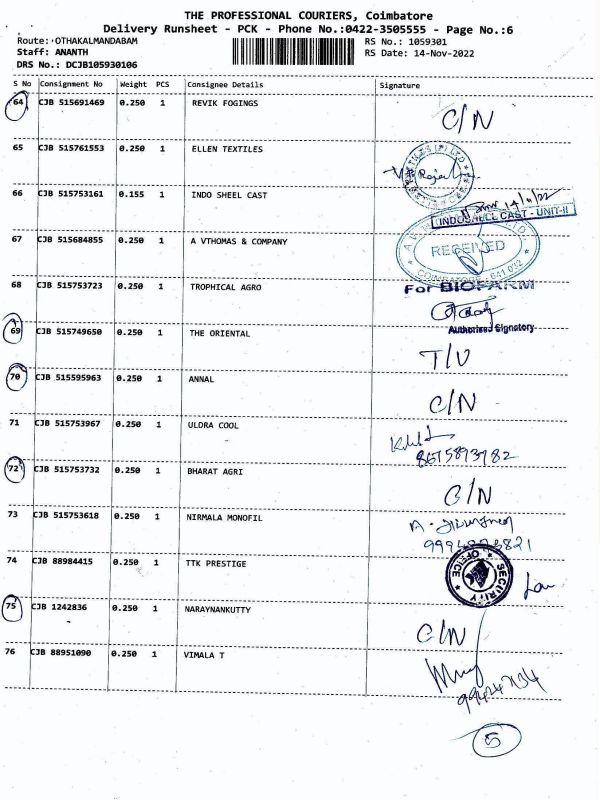 THE PROFESSIONAL COURIERS, Coimbatore
Delivery Runsheet - PCK - Phone No.:0422-3505555 - Page No.:6
Route: OTHAKALMANDABAM RS No.: 1059301
Staff: ANANTH RS Date: 14-Nov-2022
DRS No.: DCJB105930106
S No Consignment No Weight PCS Consignee Details Signature
64 CJB 515691469 0.250 1 REVIK FOGINGS C/N
65 CJB 515761553 0.250 1 ELLEN TEXTILES
66 CJB 515753161 0.155 1 INDO SHEEL CAST
INDOSHELL CAST - UNIT-II
67 CJB 515684855 0.250 1 A VTHOMAS & COMPANY RECEIVED
COIMBATORE - 641 032
68 CJB 515753723 0.250 1 TROPHICAL AGRO For BIOFARM
Authorised Signatory
69 CJB 515749650 0.250 1 THE ORIENTAL T/U
70 CJB 515595963 0.250 1 ANNAL C/N
71 CJB 515753967 0.250 1 ULDRA COOL
8675893782
72 CJB 515753732 0.250 1 BHARAT AGRI C/N
73 CJB 515753618 0.250 1 NIRMALA MONOFIL
74 CJB 88984415 0.250 1 TTK PRESTIGE SECURITY OFFICE
75 CJB 1242836 0.250 1 NARAYNANKUTTY C/N
76 CJB 88951090 0.250 1 VIMALA T
5